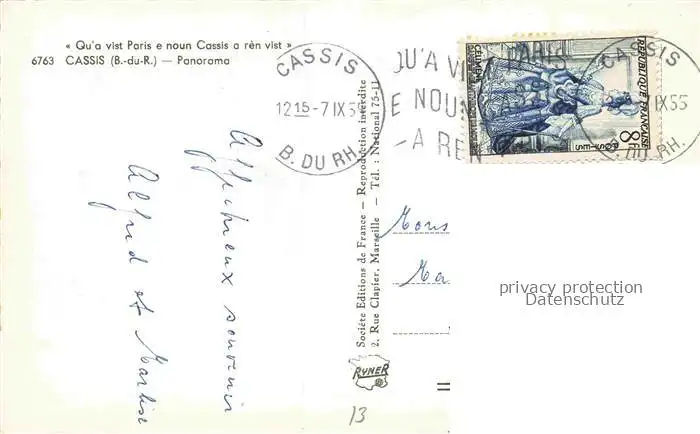 « Qu'a vist Paris e noun Cassis a rèn vist »
6763 CASSIS (B.-du-R.) — Panorama
CASSIS
12 15 - 7 IX 5
B. DU RH.
QU'A V PARIS
E NOUN
- A REN
CASSIS
IX 55
B. DU RH.
REPUBLIQUE FRANÇAISE
8F
CELIMENE
POSTES
Affectueux souvenir
Alfred et
Société Editions de France — Reproduction interdite
2, Rue Clapier, Marseille — Tél. : National 75-11
RYNER
Mons
Ma
privacy protection
Datenschutz
13